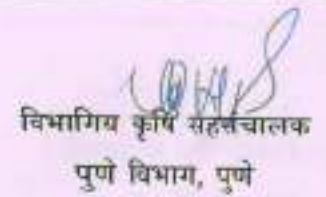 विभागिय कृषि सहसंचालक
पुणे विभाग, पुणे